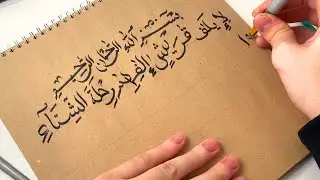 بسم الله الرحمن الرحيم
لإيلف قريش إلفهم رحلة الشتآء